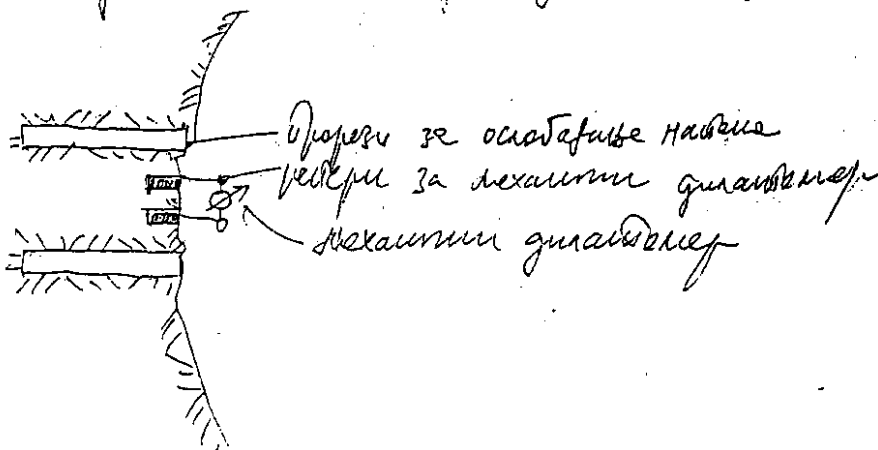 Прорези за ослобађање напона
репери за механички дилатометар
механички дилатометар